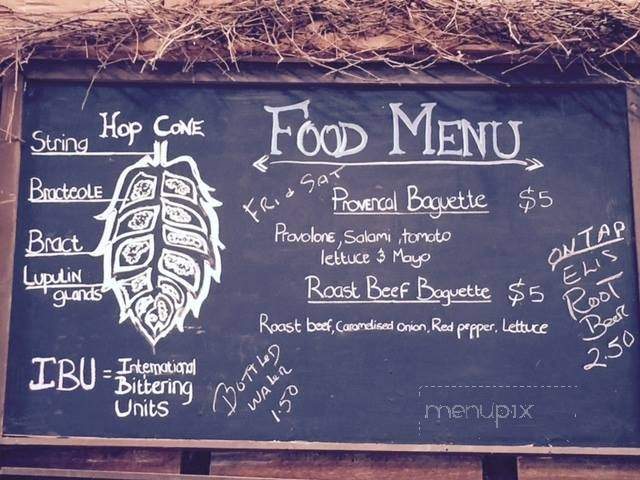 Hop Cone
String
Bracteole
Bract
Lupulin
glands
IBU = International
Bittering
Units
FOOD MENU
FRI & SAT
Provencal Baguette $5
Provolone, Salami, tomato
lettuce & Mayo
Roast Beef Baguette $5
Roast beef, Caramelised onion, Red pepper, Lettuce
BOTTLED
WATER
1.50
ON TAP
ELIS
ROOT
Beer
2.50
menupix